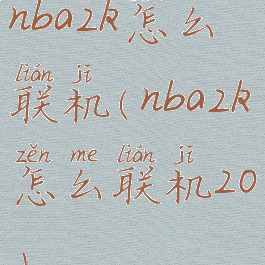 nba2k怎么
lián jī
联机(nba2k
zěn me lián jī
怎么联机20
)